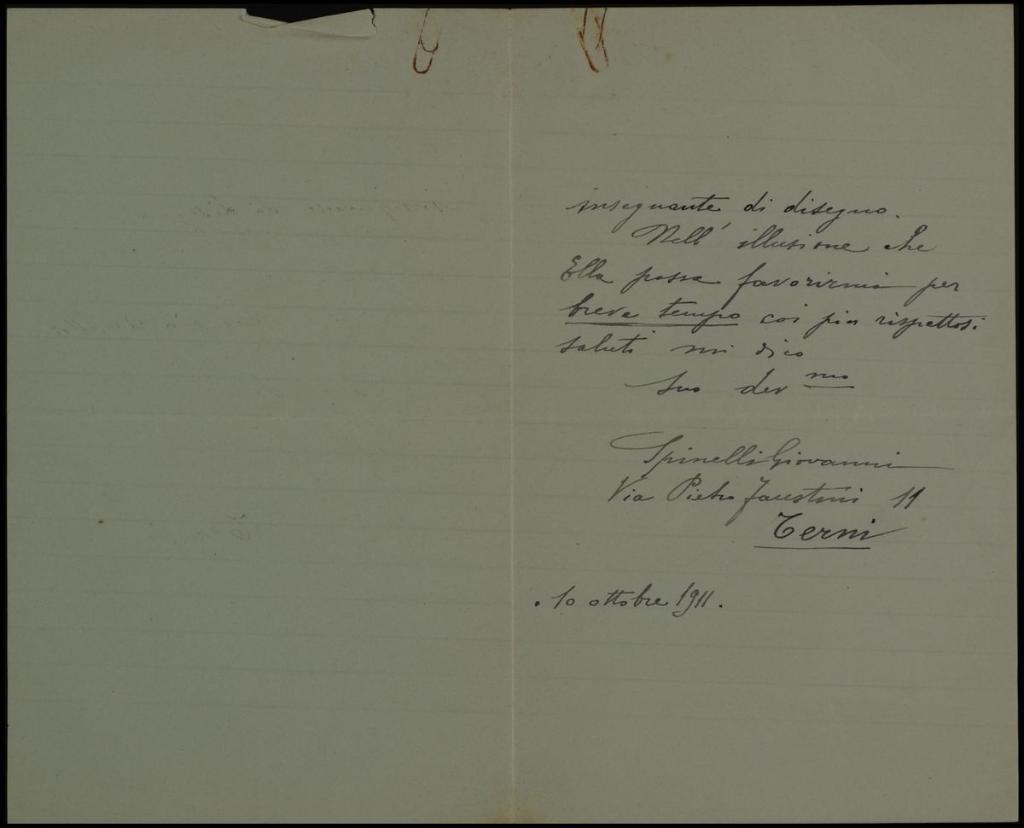 insegnante di disegno.
Nell' illusione che
Ella possa favorirmi per
breve tempo coi più rispettosi
saluti mi dico
Suo dev mo
Spinelli Giovanni
Via Pietro Faustini 11
Terni
. 10 ottobre 1911.